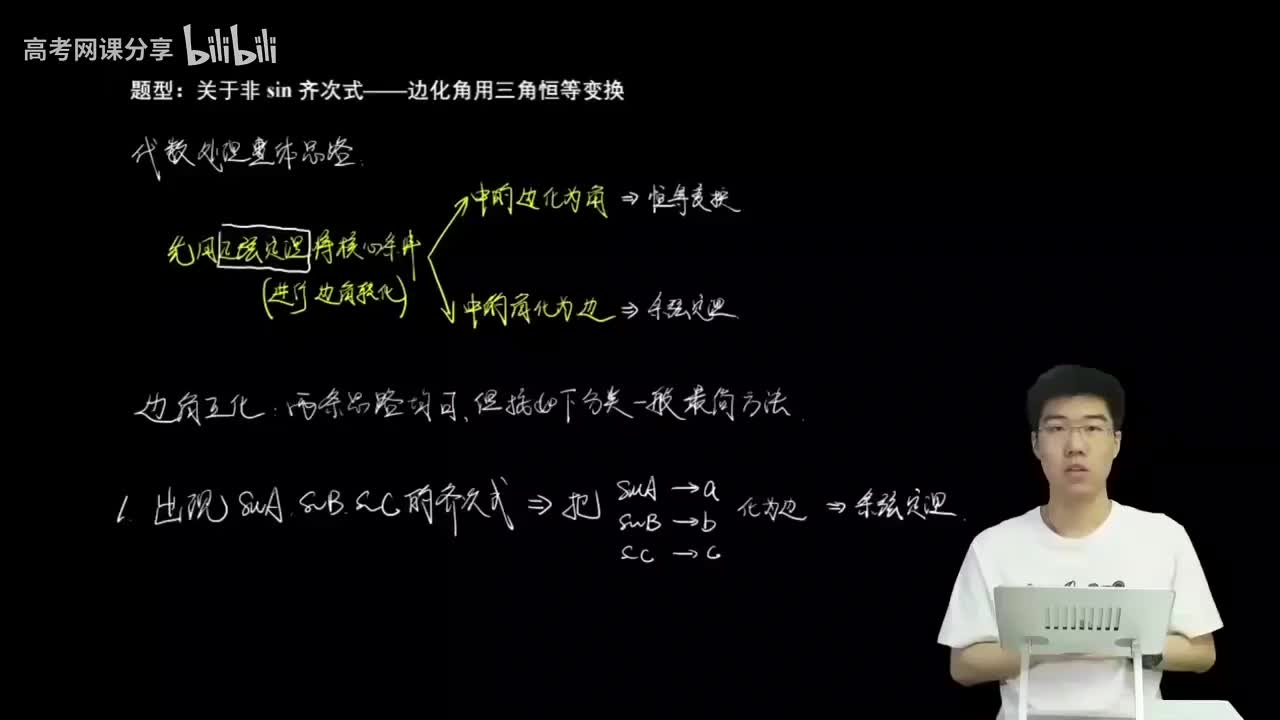 高考网课分享 bilibili
题型：关于非 sin 齐次式——边化角用三角恒等变换
代数处理整体思路.
中的边化为角 ⇒ 恒等变换
先用正弦定理将核心条件
(进行边角转化)
中的角化为边 ⇒ 余弦定理.
边角互化：两条思路均可, 但按如下分类一般最简方法.
1. 出现 sinA. sinB. sinC 的齐次式 ⇒ 把 sinA → a
sinB → b 化为边 ⇒ 余弦定理.
sinC → c